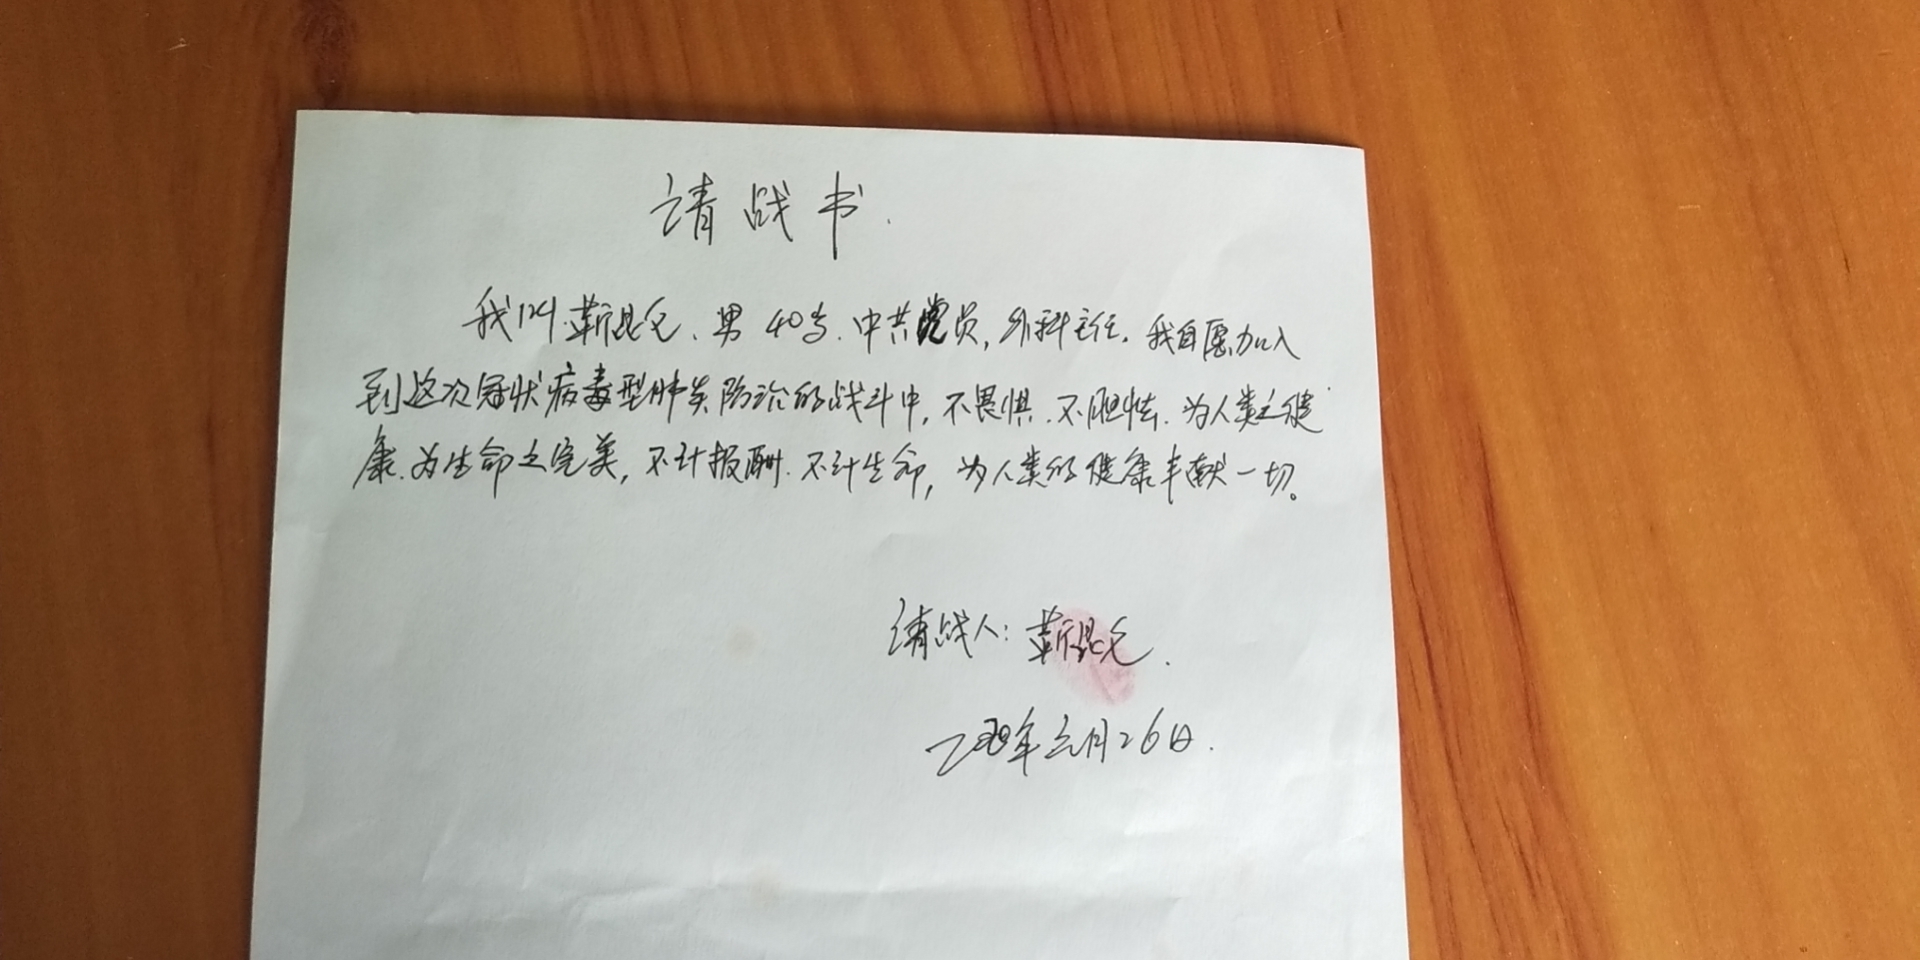 请战书.
我叫靳昆仑、男 40岁. 中共党员, 外科主任. 我自愿加入
到这次冠状病毒型肺炎防治的战斗中, 不畏惧. 不胆怯. 为人类之健
康. 为生命之完美, 不计报酬. 不计生命, 为人类的健康奉献一切。
请战人: 靳昆仑.
二〇二〇年元月26日.